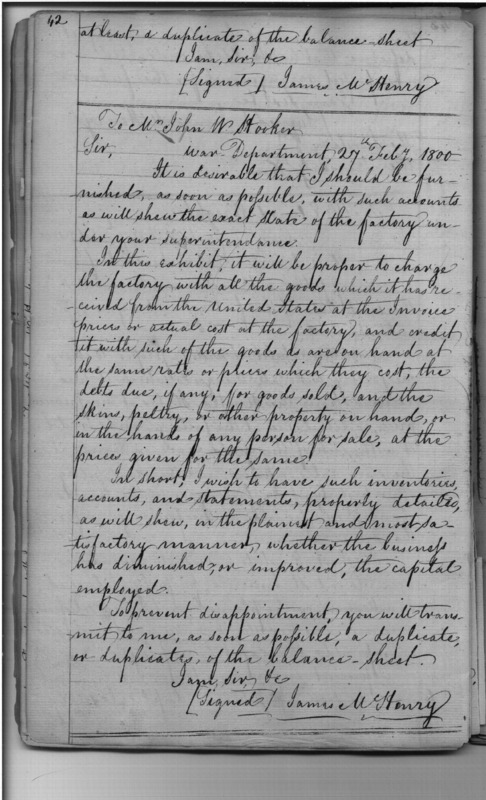 42
at least, a duplicate of the balance-sheet
I am, Sir, &c
(Signed) James McHenry
To Mr John W Hooker
Sir, War-Department, 27th Feby, 1800
It is desirable that I should be fur-
nished, as soon as possible, with such accounts
as will shew the exact state of the factory un-
der your superintendance.
In this exhibit, it will be proper to charge
the factory with all the goods which it has re-
ceived from the United States at the Invoice
prices or actual cost at the factory, and credit
it with such of the goods as are on hand at
the same rates or prices which they cost, the
debts due, if any, for goods sold, and the
skins, peltry, or other property on hand, or
in the hands of any person for sale, at the
prices given for the same.
In short, I wish to have such inventories,
accounts, and statements, properly detailed,
as will shew, in the plainest and most sa-
tisfactory manner, whether the business
has diminished, or improved, the capital
employed.
To prevent disappointment, you will trans-
mit to me, as soon as possible, a duplicate,
or duplicates, of the balance-sheet.
I am, Sir, &c
(Signed) James McHenry